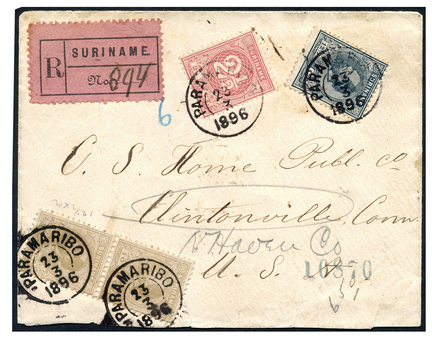 SURINAME
R No. 394
2½
SURINAME
PARAMARIBO
23
3
1896
PARAM
23
3
1896
6
C. S. Home Publ. Co
Clintonville, Conn.
N Haven Co
U. S.
10870
PARAMARIBO
23
3
1896
PARAMARIBO
23
3
1896